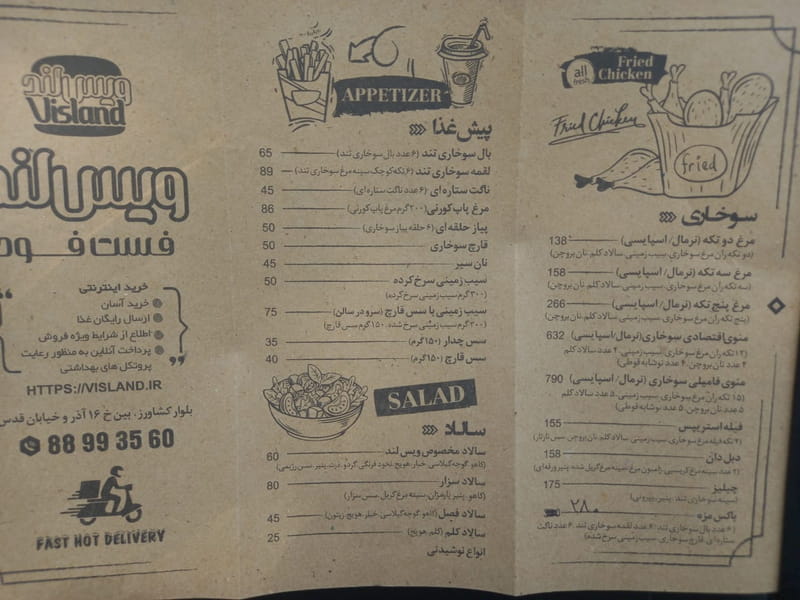 Fried
Chicken
all
fresh
Fried Chicken
fried
سوخاری
مرغ دو تکه (نرمال/ اسپایسی) 138
(دو تکه ران مرغ سوخاری، سیب زمینی، سالاد کلم، نان بروچن)
مرغ سه تکه (نرمال/ اسپایسی) 158
(سه تکه ران مرغ سوخاری، سیب زمینی، سالاد کلم، نان بروچن)
مرغ پنج تکه (نرمال/ اسپایسی) 266
(پنج تکه ران مرغ سوخاری، سیب زمینی، سالاد کلم، نان بروچن)
منوی اقتصادی سوخاری (نرمال/اسپایسی) 632
(۱۲ تکه ران مرغ سوخاری، سیب زمینی، ۴ عدد سالاد کلم
۴ عدد نان بروچن، ۴ عدد نوشابه قوطی)
منوی فامیلی سوخاری (نرمال/ اسپایسی) 790
(۱۵ تکه ران مرغ سوخاری، سیب زمینی، ۵ عدد سالاد کلم
۵ عدد نان بروچن، ۵ عدد نوشابه قوطی)
فیله استریپس 155
(۴ تکه فیله مرغ سوخاری، سیب زمینی، سالاد کلم، نان بروچن، سس تارتار)
دبل دان 158
(۲ عدد سینه مرغ کریسپی، ژامبون مرغ، سینه مرغ گریل شده، پنیر ورقه ای)
چیلیز 175
(سینه سوخاری تند، پنیر، پپرونی)
باکس مزه ۲۸۰
(۶ عدد بال سوخاری تند، ۶ عدد لقمه سوخاری تند، ۶ عدد ناگت
ستاره ای، قارچ سوخاری، سیب زمینی سرخ شده)
APPETIZER
پیش غذا
بال سوخاری تند (۶ عدد بال سوخاری تند) 65
لقمه سوخاری تند (۶ تکه کوچک سینه مرغ سوخاری تند) 89
ناگت ستاره ای (۶ عدد ناگت ستاره ای) 45
مرغ پاپ کورنی (۲۰۰ گرم مرغ پاپ کورنی) 86
پیاز حلقه ای (۶ حلقه پیاز سوخاری) 50
قارچ سوخاری 50
نان سیر 45
سیب زمینی سرخ کرده 50
(۳۰۰ گرم سیب زمینی سرخ کرده)
سیب زمینی با سس قارچ (سرو در سالن) 75
(۳۰۰ گرم سیب زمینی سرخ شده، ۱۵۰ گرم سس قارچ)
سس چدار (۱۵۰ گرم) 35
سس قارچ (۱۵۰ گرم) 40
SALAD
سالاد
سالاد مخصوص ویس لند 60
(کاهو، گوجه گیلاسی، خیار، هویج، نخود فرنگی، گردو، ذرت، پنیر، سس رژیمی)
سالاد سزار 80
(کاهو، پنیر پارمزان، سینه مرغ گریل، سس سزار)
سالاد فصل (کاهو، گوجه گیلاسی، خیار، هویج، زیتون) 45
سالاد کلم (کلم، هویج) 25
انواع نوشیدنی
ویس لند
Visland
ویس لند
فست فود
خرید اینترنتی
خرید آسان
ارسال رایگان غذا
اطلاع از شرایط ویژه فروش
پرداخت آنلاین به منظور رعایت
پروتکل های بهداشتی
HTTPS://VISLAND.IR
بلوار کشاورز، بین خ ۱۶ آذر و خیابان قدس
88 99 35 60
FAST HOT DELIVERY